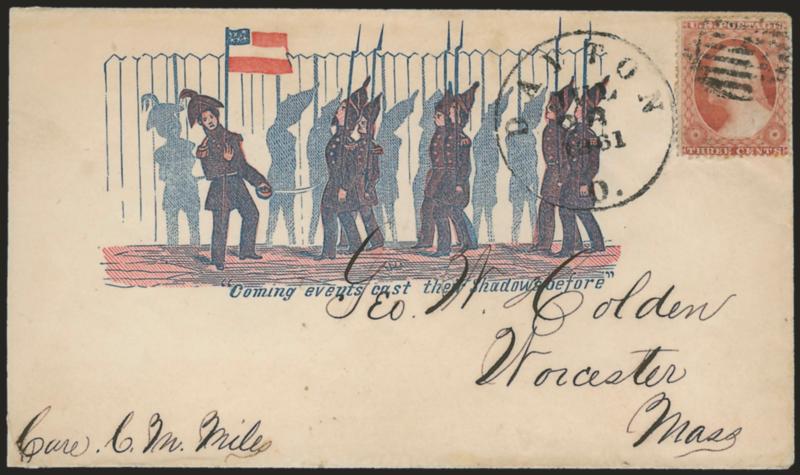 U.S. POSTAGE
THREE CENTS
DAYTON
1861
O.
"Coming events cast their shadows before"
Geo. W. Colden
Worcester
Mass
Care. C. M. Miles